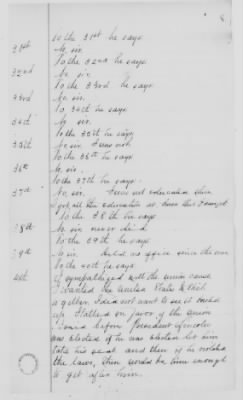 To the 31st he says
31st No sir.
To the 32nd he says
32nd No sir
To the 33rd he says
33rd No sir.
To 34th he says
34th No sir.
To the 35th he says
35th No sir I was not
To the 36th he says
36th No sir.
To the 37th he says.
37th No, sir. I was not educated then
I got all the education at since this I can get
To the 38th he says
38th No sir never did
To the 39th he says
39th No sir. Held no office since the war
To the 40th he says
40th I sympathized with the union cause
I wanted the United States to stick
together. I did not want to see it busted
up. I talked in favor of the Union
cause before President Lincoln
was elected if he was elected let him
take his seat and then if he violated
the laws, then would be time enough
to get after him.